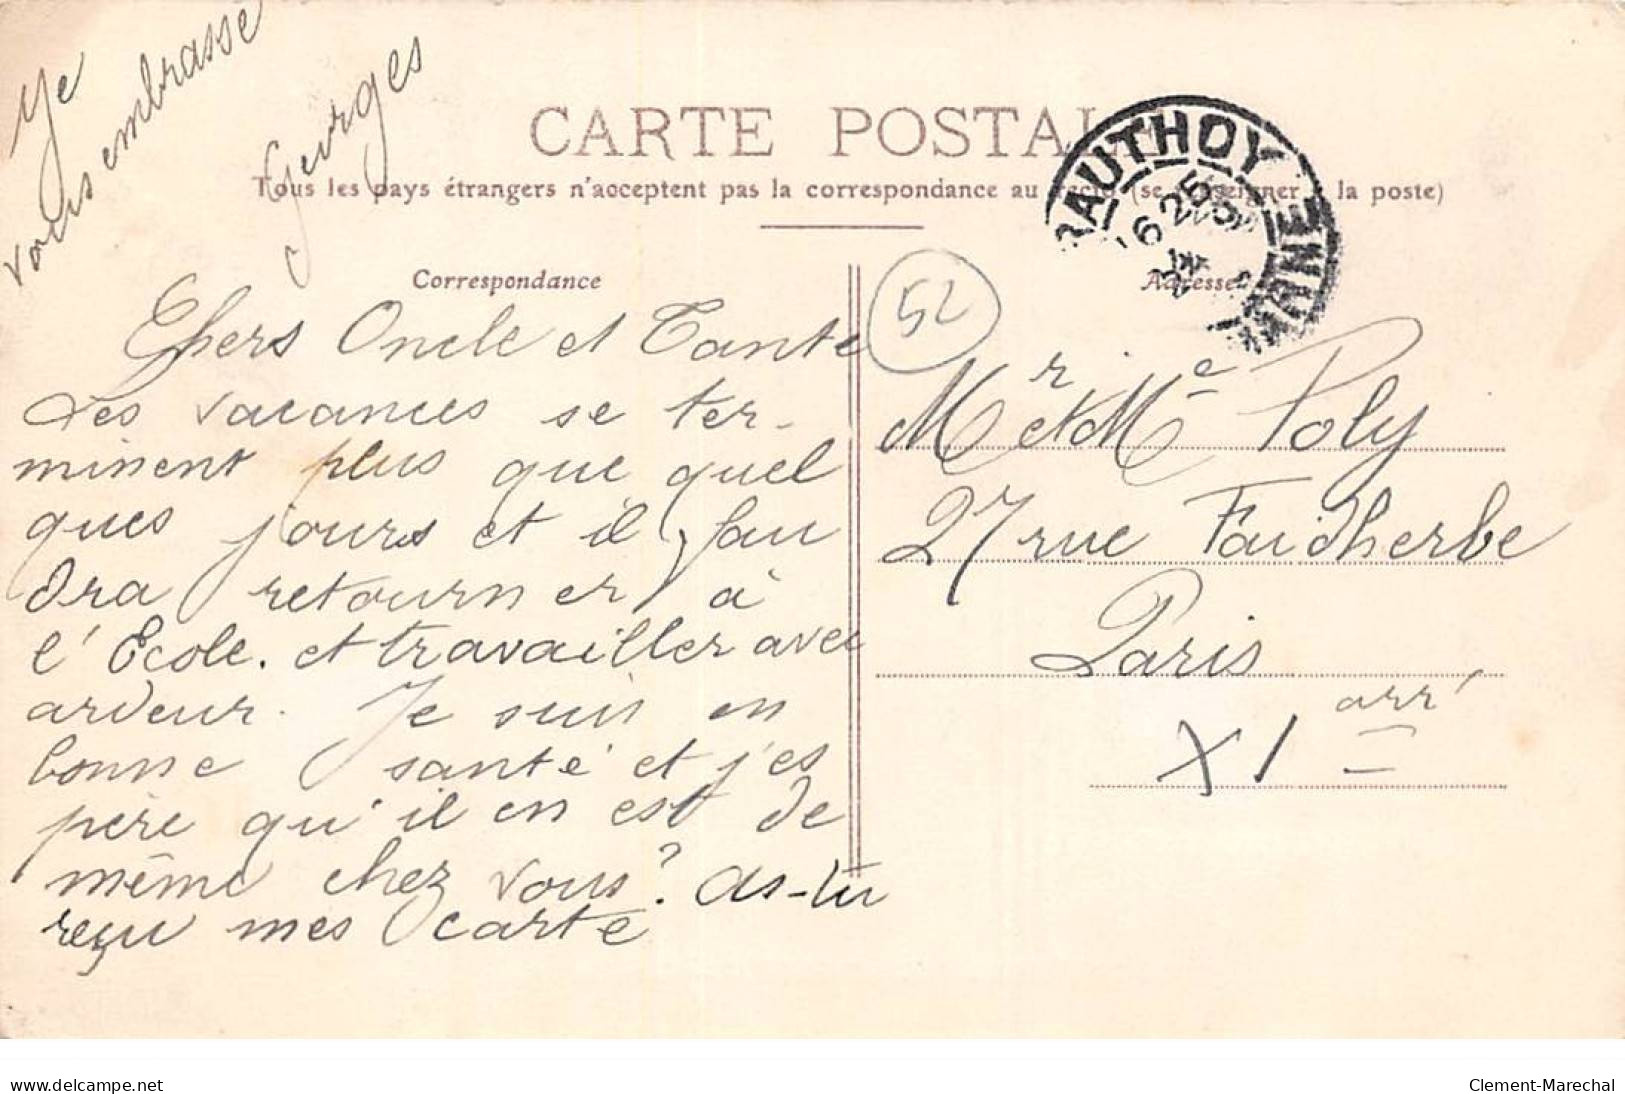 Je
vous embrasse
Georges
CARTE POSTALE
Tous les pays étrangers n'acceptent pas la correspondance au recto (se renseigner à la poste)
PRAUTHOY
25
HTE MARNE
Correspondance
Chers Oncle et Tante
Les vacances se ter-
minent plus que quel
ques jours et il fau
dra retourner à
l'Ecole. et travailler avec
ardeur. Je suis en
bonne santé et j'es
père qu'il en est de
même chez vous? As-tu
reçu mes carte
52
Adresse
Mr et Me Poly
27 rue Faidherbe
Paris
XI arrt
www.delcampe.net
Clement-Marechal